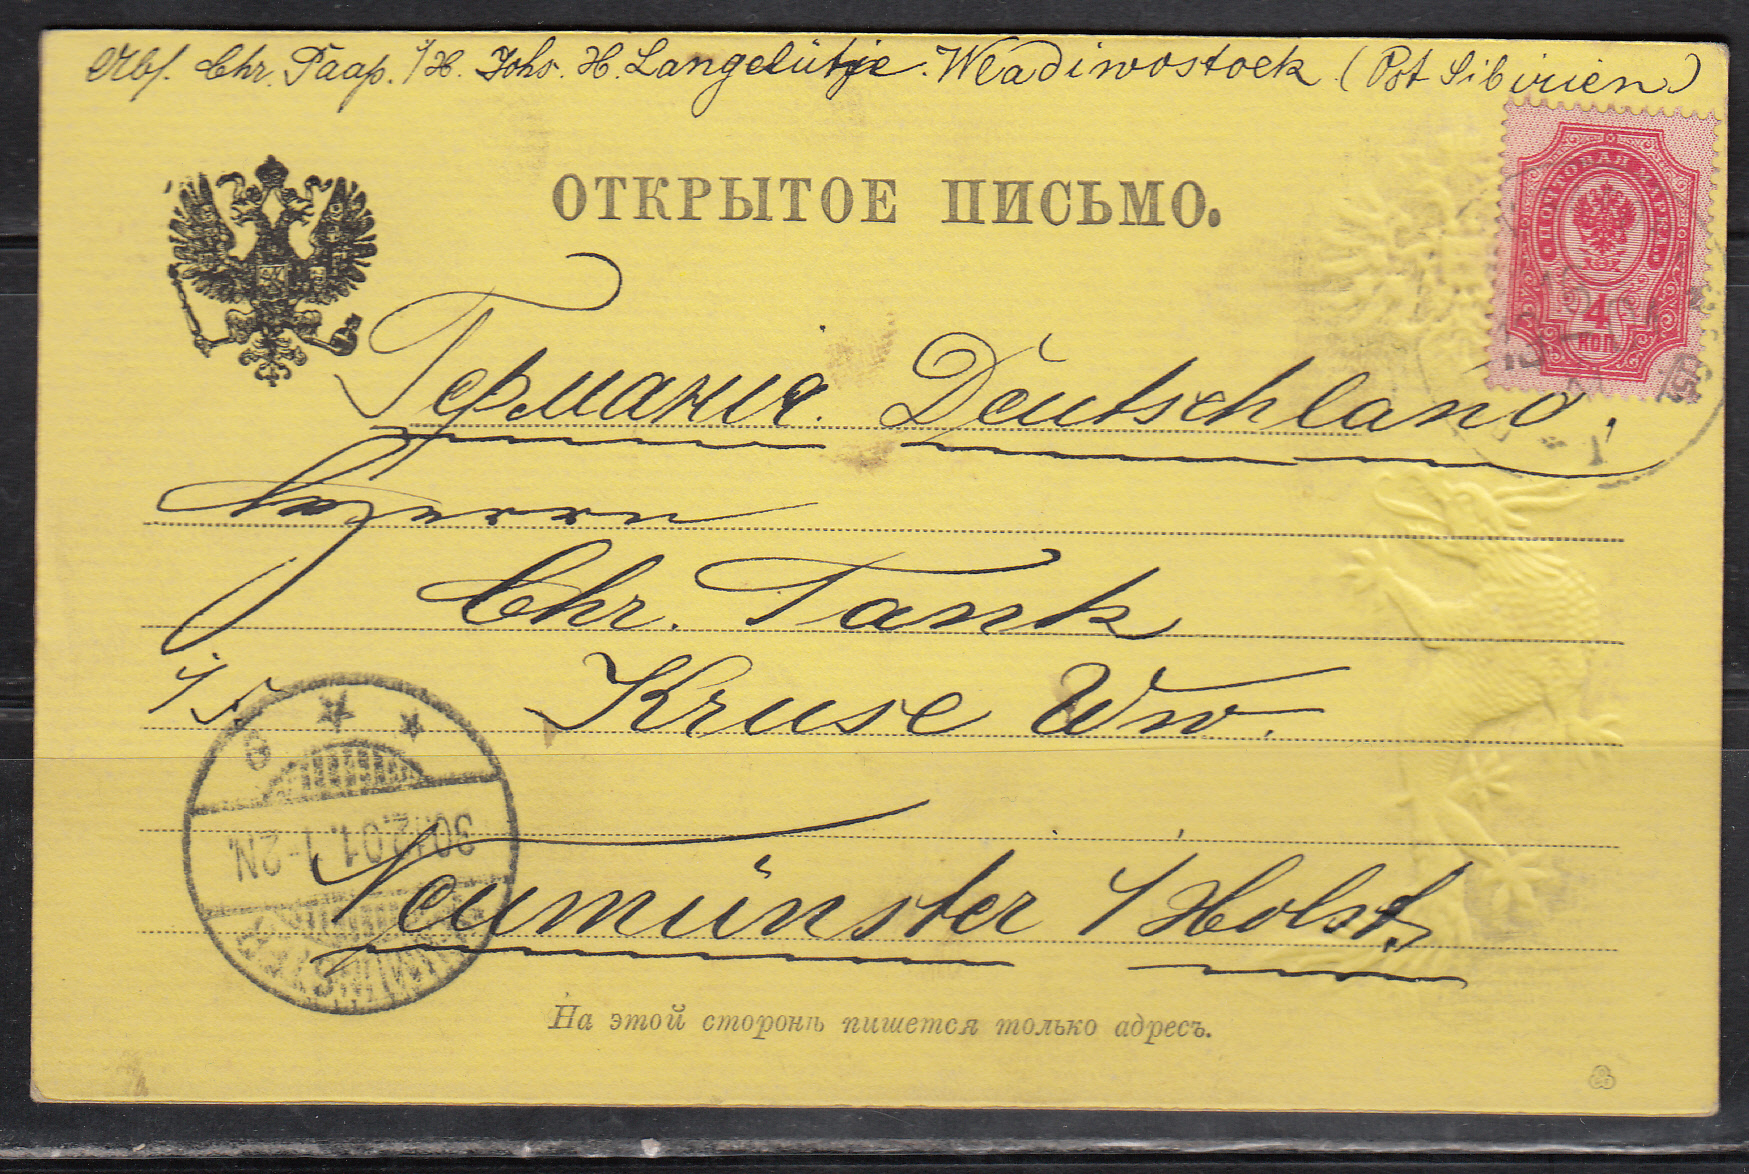 Abs. Chr. Paap. i/H. Johs. H. Langelütje. Wladiwostock (Ost Sibirien)
ОТКРЫТОЕ ПИСЬМО.
ПОЧТОВАЯ МАРКА
4
КОП.
Германія. Deutschland.
Herrn
Chr. Tank
i/F. Kruse Ww.
Neumünster i/Holst.
30.12.01. 1-2N.
На этой сторонѣ пишется только адресъ.